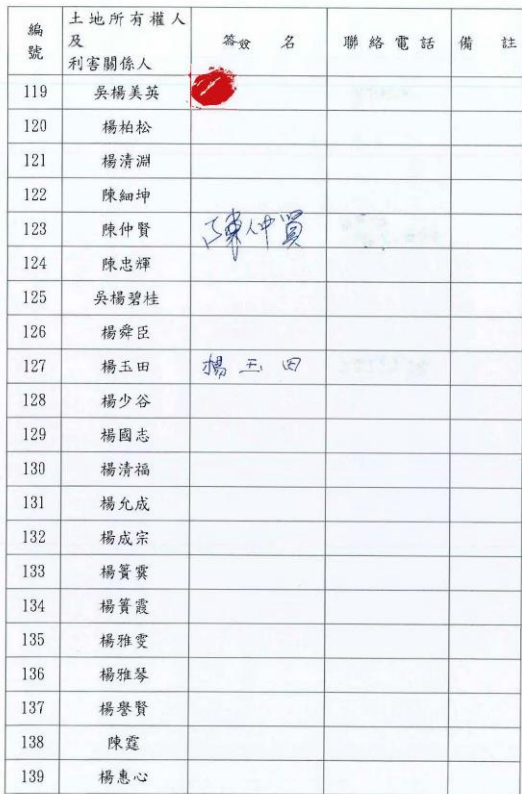 編號 土地所有權人及利害關係人 簽名 聯絡電話 備註
119 吳楊美英
120 楊柏松
121 楊清淵
122 陳細坤
123 陳仲賢 陳仲賢
124 陳忠輝
125 吳楊碧桂
126 楊舜臣
127 楊玉田 楊玉田
128 楊少谷
129 楊國志
130 楊清福
131 楊允成
132 楊成宗
133 楊簀霙
134 楊簀霞
135 楊雅雯
136 楊雅琴
137 楊譽賢
138 陳霆
139 楊惠心